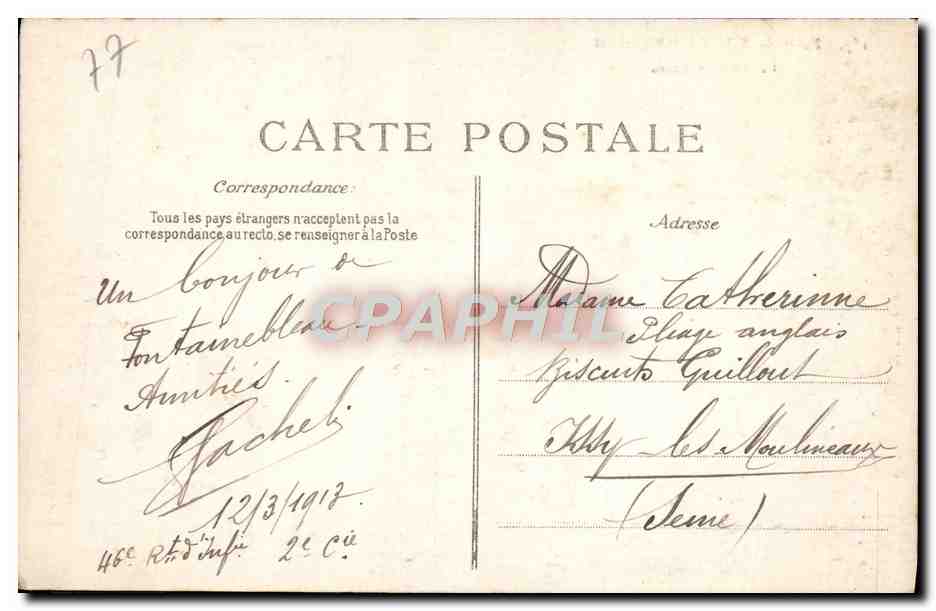 77
CARTE POSTALE
Correspondance:
Tous les pays étrangers n'acceptent pas la
correspondance au recto, se renseigner à la Poste
Un bonjour de
Fontainebleau
Amitiés.
12/3/1913.
46e Rt d'Infie 2e Cie
Adresse
Madame Catherinne
Pliage anglais
Biscuits Guillout
Issy les Moulineaux
(Seine)
CPAPHIL